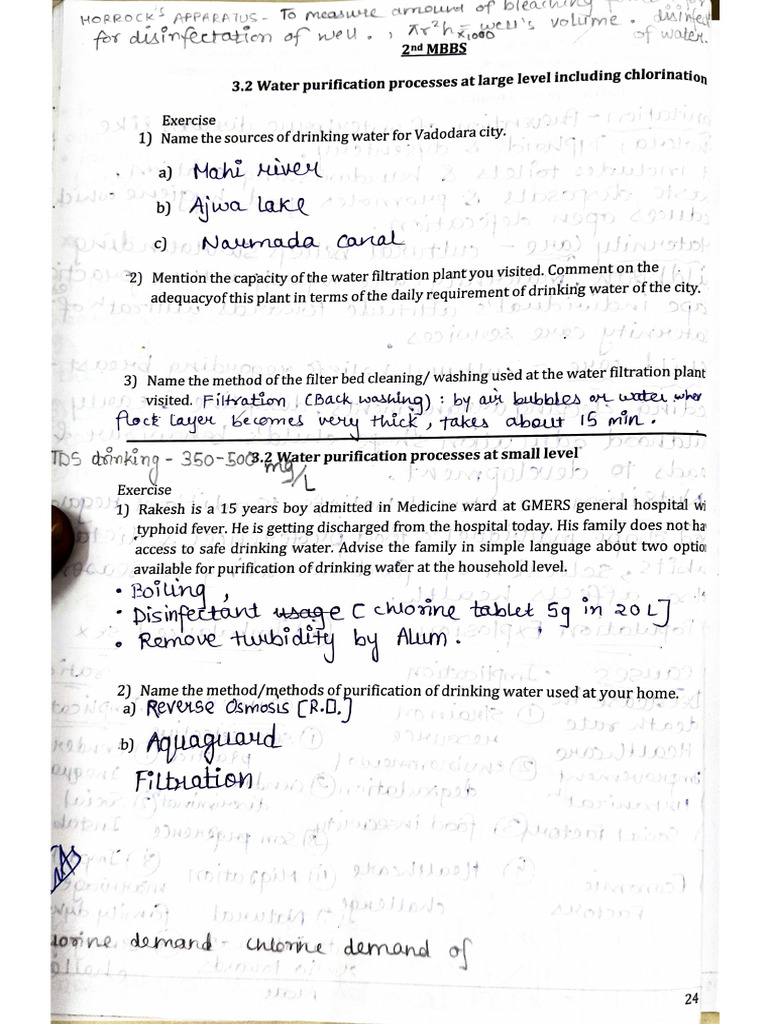 HORROCK'S APPARATUS - To measure amount of bleaching
for disinfectation of well. , πr²h x1000 - well's volume. disinfec
of water.
2nd MBBS
3.2 Water purification processes at large level including chlorination
Exercise
1) Name the sources of drinking water for Vadodara city.
a) Mahi river
b) Ajwa lake
c) Narmada canal
2) Mention the capacity of the water filtration plant you visited. Comment on the
adequacyof this plant in terms of the daily requirement of drinking water of the city.
3) Name the method of the filter bed cleaning/ washing used at the water filtration plant
visited. Filtration, (Back washing) : by air bubbles or water when
flock layer becomes very thick, takes about 15 min.
TDS drinking - 350-500 mg/L
3.2 Water purification processes at small level
Exercise
1) Rakesh is a 15 years boy admitted in Medicine ward at GMERS general hospital wi
typhoid fever. He is getting discharged from the hospital today. His family does not ha
access to safe drinking water. Advise the family in simple language about two optio
available for purification of drinking water at the household level.
• Boiling,
• Disinfectant usage [ chlorine tablet 5g in 20 L]
• Remove turbidity by Alum.
2) Name the method/methods of purification of drinking water used at your home.
a) Reverse Osmosis [R.O.]
b) Aquaguard
Filtration
lorine demand - chlorine demand of
24